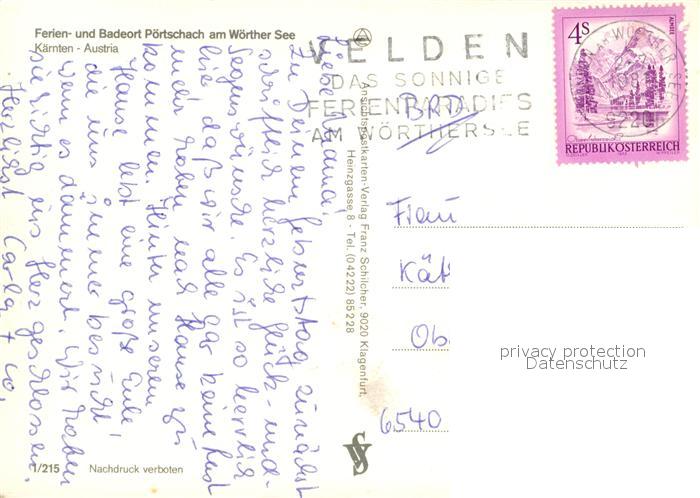 Ferien- und Badeort Pörtschach am Wörther See
Kärnten - Austria
Liebe Mama!
Zu Deinem Geburtstag zunächst
sehr herzliche Glück- und
Segenswünsche. Es ist so herrlich
hier daß wir alle gar keine Lust
mehr haben nach Hause zu
kommen. Hinter unserem
Hause lebt eine große Eule,
die uns immer besucht
wenn es dämmert. Wir haben
sie richtig ins Herz geschlossen.
Herzlichst Carla +
1/215 Nachdruck verboten
Ansichtspostkarten-Verlag Franz Schilcher, 9020 Klagenfurt,
Heinzgasse 8 - Tel. (04222) 85228
VELDEN
DAS SONNIGE
FERIENPARADIES
AM WÖRTHERSEE
BRD
4S
ALMSEE
REPUBLIK ÖSTERREICH
AM WÖRTHER SEE
9220
Frau
Kät
Ob
6540
privacy protection
Datenschutz